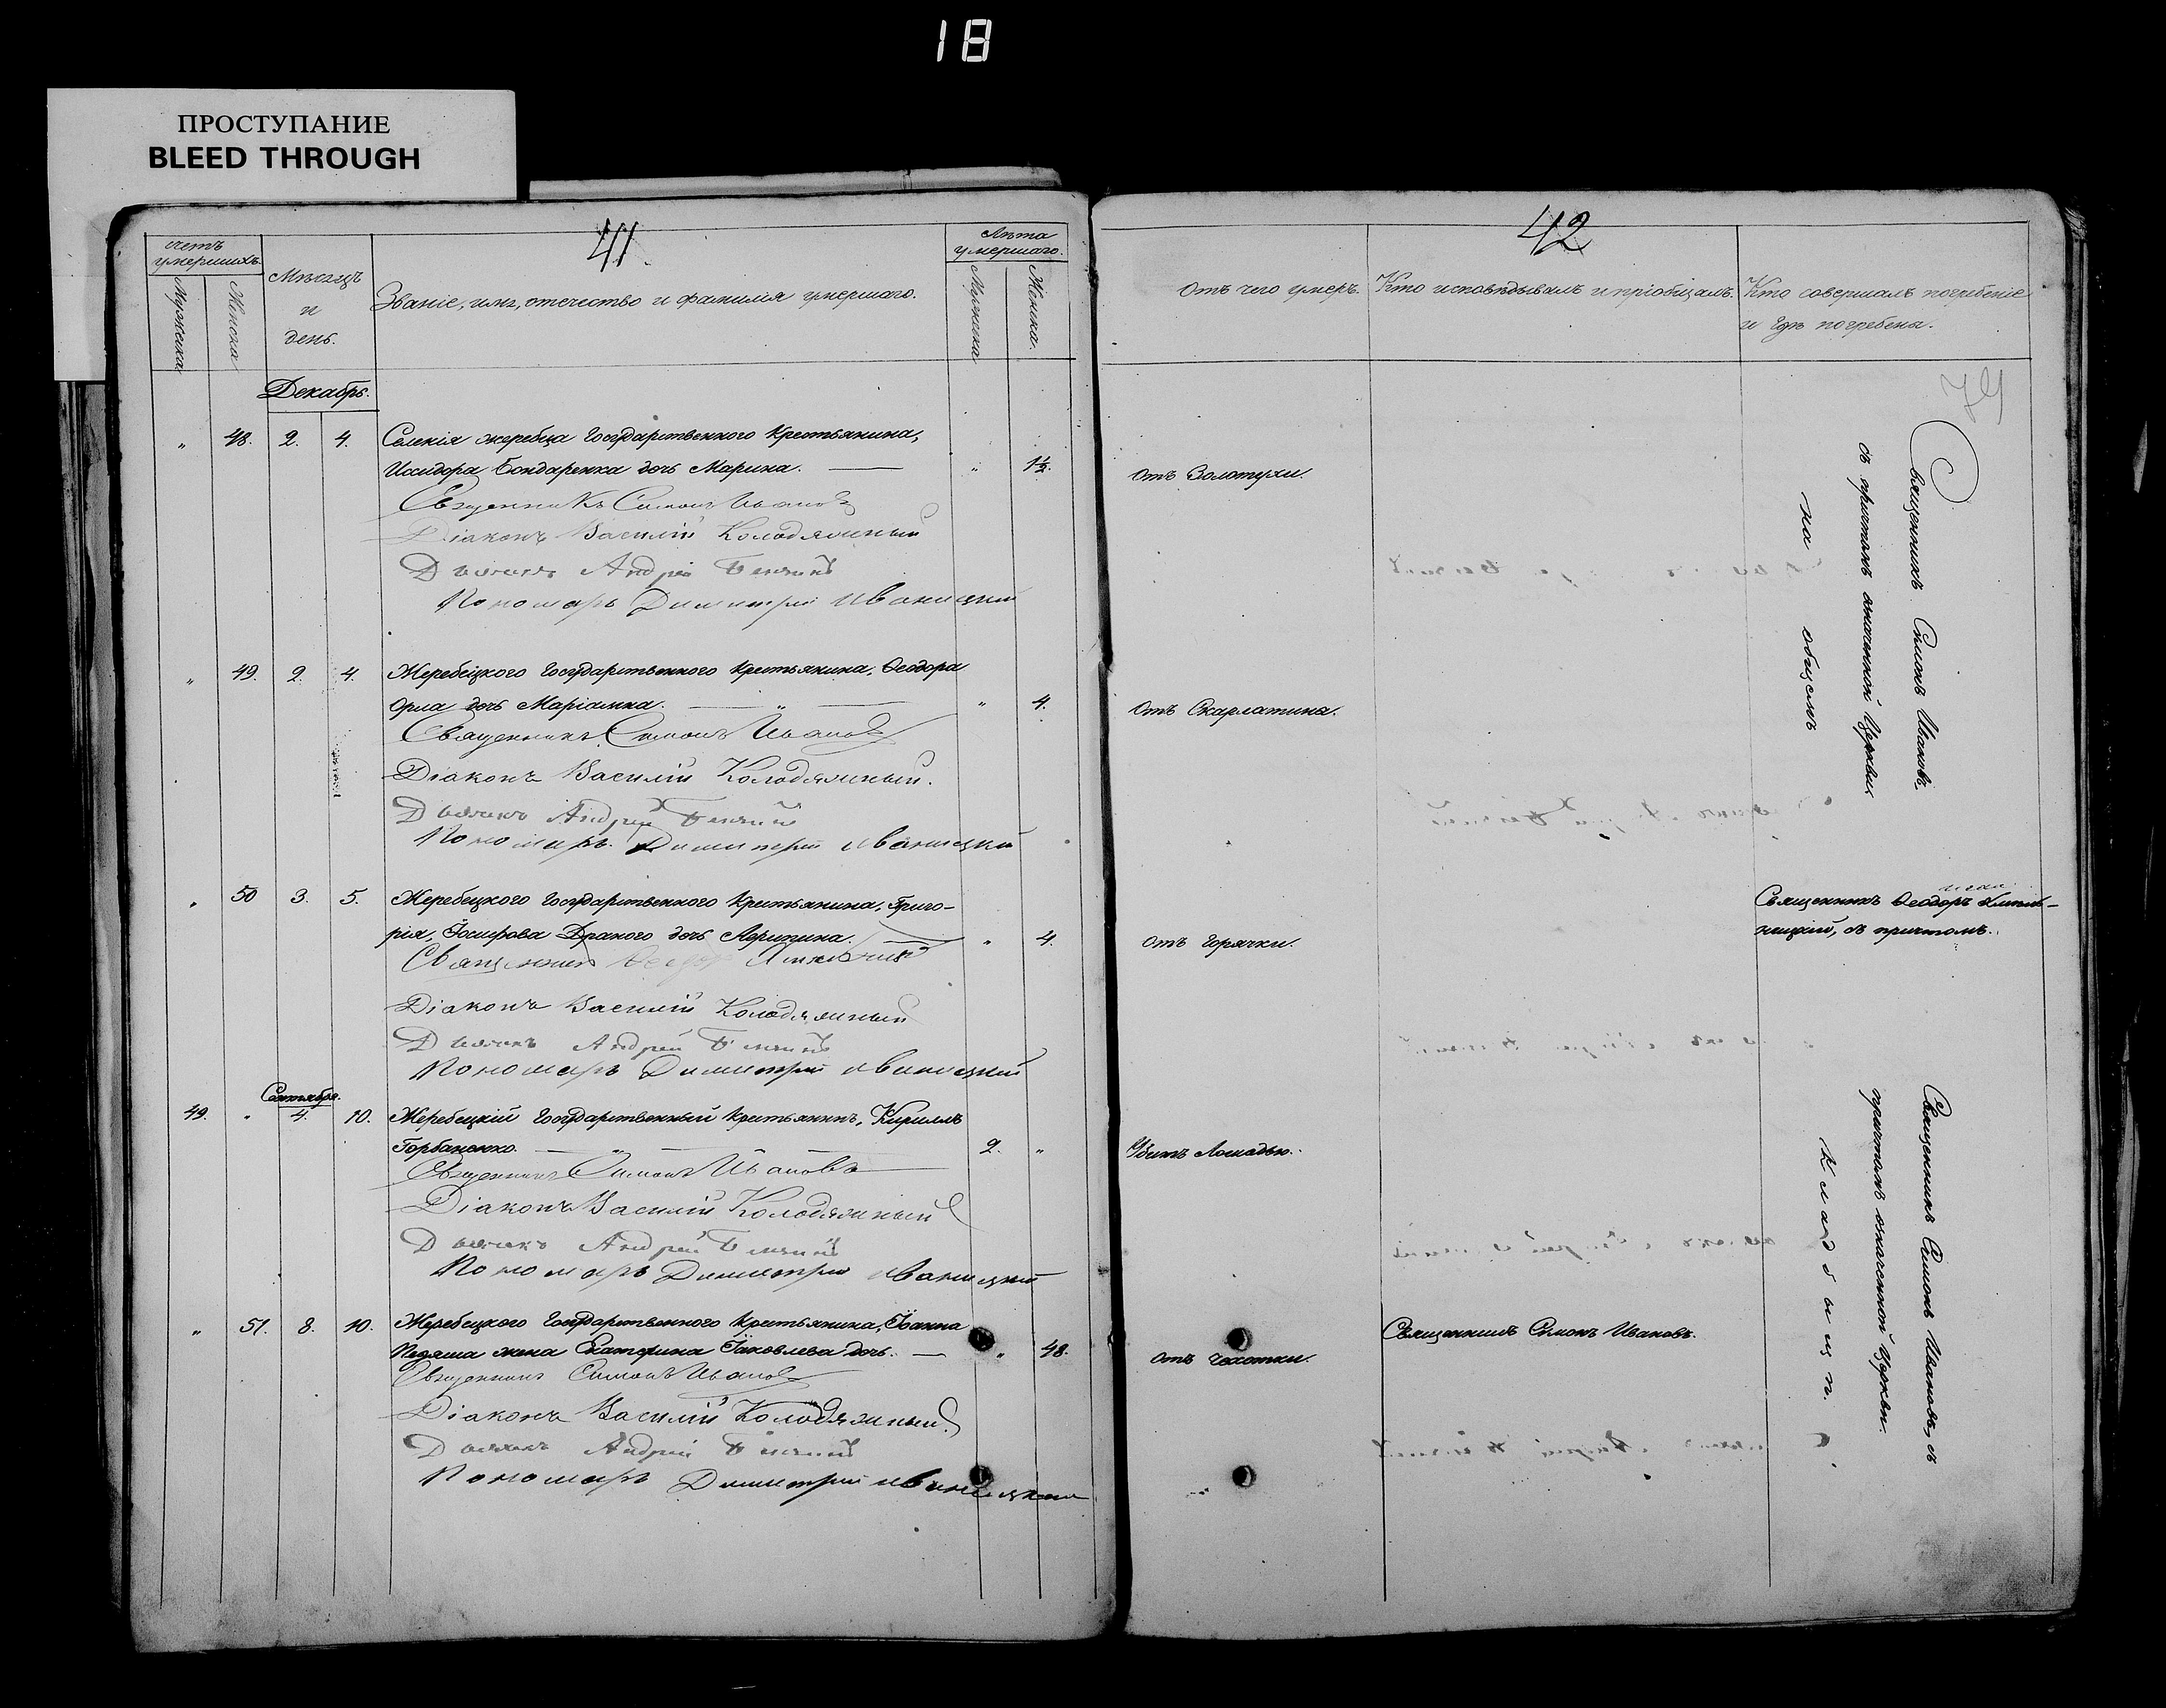 18
ПРОСТУПАНИЕ
BLEED THROUGH
41
счетъ умершихъ.
Мужеска
Женска
Мѣсяцъ и день.
Званіе, имя, отечество и фамилія умершаго.
Лѣта умершаго.
Мужеска
Женска.
Декабрь.
" 48. 2. 4. Селенія жеребца Государственного Крестьянина,
Иссидора Бондаренка дочь Марина. — " 1½.
Священникъ Симонъ Ивановъ
Діаконъ Василій Колодяжный
Дьячекъ Андрей
Пономарь Димитрій Иваницкій
" 49. 2. 4. Жеребецкого Государственного Крестьянина, Ѳеодора
Орла дочь Маріанна. — " — " 4.
Священникъ Симонъ Ивановъ
Діаконъ Василій Колодяжный.
Дьячекъ Андрей
Пономарь Димитрій Иваницкій
" 50 3. 5. Жеребецкого Государственного Крестьянина, Григо-
рія, Іосифова Драного дочь Агрипина. — " 4.
Священникъ Ѳеодоръ
Діаконъ Василій Колодяжный
Дьячекъ Андрей
Пономарь Димитрій Иваницкій
Сентября.
49. " 4. 10. Жеребецкій Государственный Крестьянинъ, Кириллъ
Горбаненко. — " — 2. "
Священникъ Симонъ Ивановъ
Діаконъ Василій Колодяжный
Дьячекъ Андрей
Пономарь Димитрій Иваницкій
" 51. 8. 10. Жеребецкого Государственного Крестьянина, Іоанна
жена Екатерина Іаковлева дочь. — " 48.
Священникъ Симонъ Ивановъ
Діаконъ Василій Колодяжный.
Дьячекъ Андрей
Пономарь Димитрій Иваницкій
42
Отъ чего умеръ.
Кто исповѣдывалъ и пріобщалъ.
Кто совершалъ погребеніе
и гдѣ погребены.
отъ Золотухи.
Отъ Скарлатина.
отъ Горячки.
Убитъ Лошадью.
отъ чахотки.
Священникъ Симонъ Ивановъ.
Священникъ Симонъ Ивановъ
съ причтомъ означенной Церквы
на общемъ
Священникъ Ѳеодоръ
ницкій, съ причтомъ.
Священникъ Симонъ Ивановъ, съ
причтомъ означенной Церкви.
Кладбищѣ.